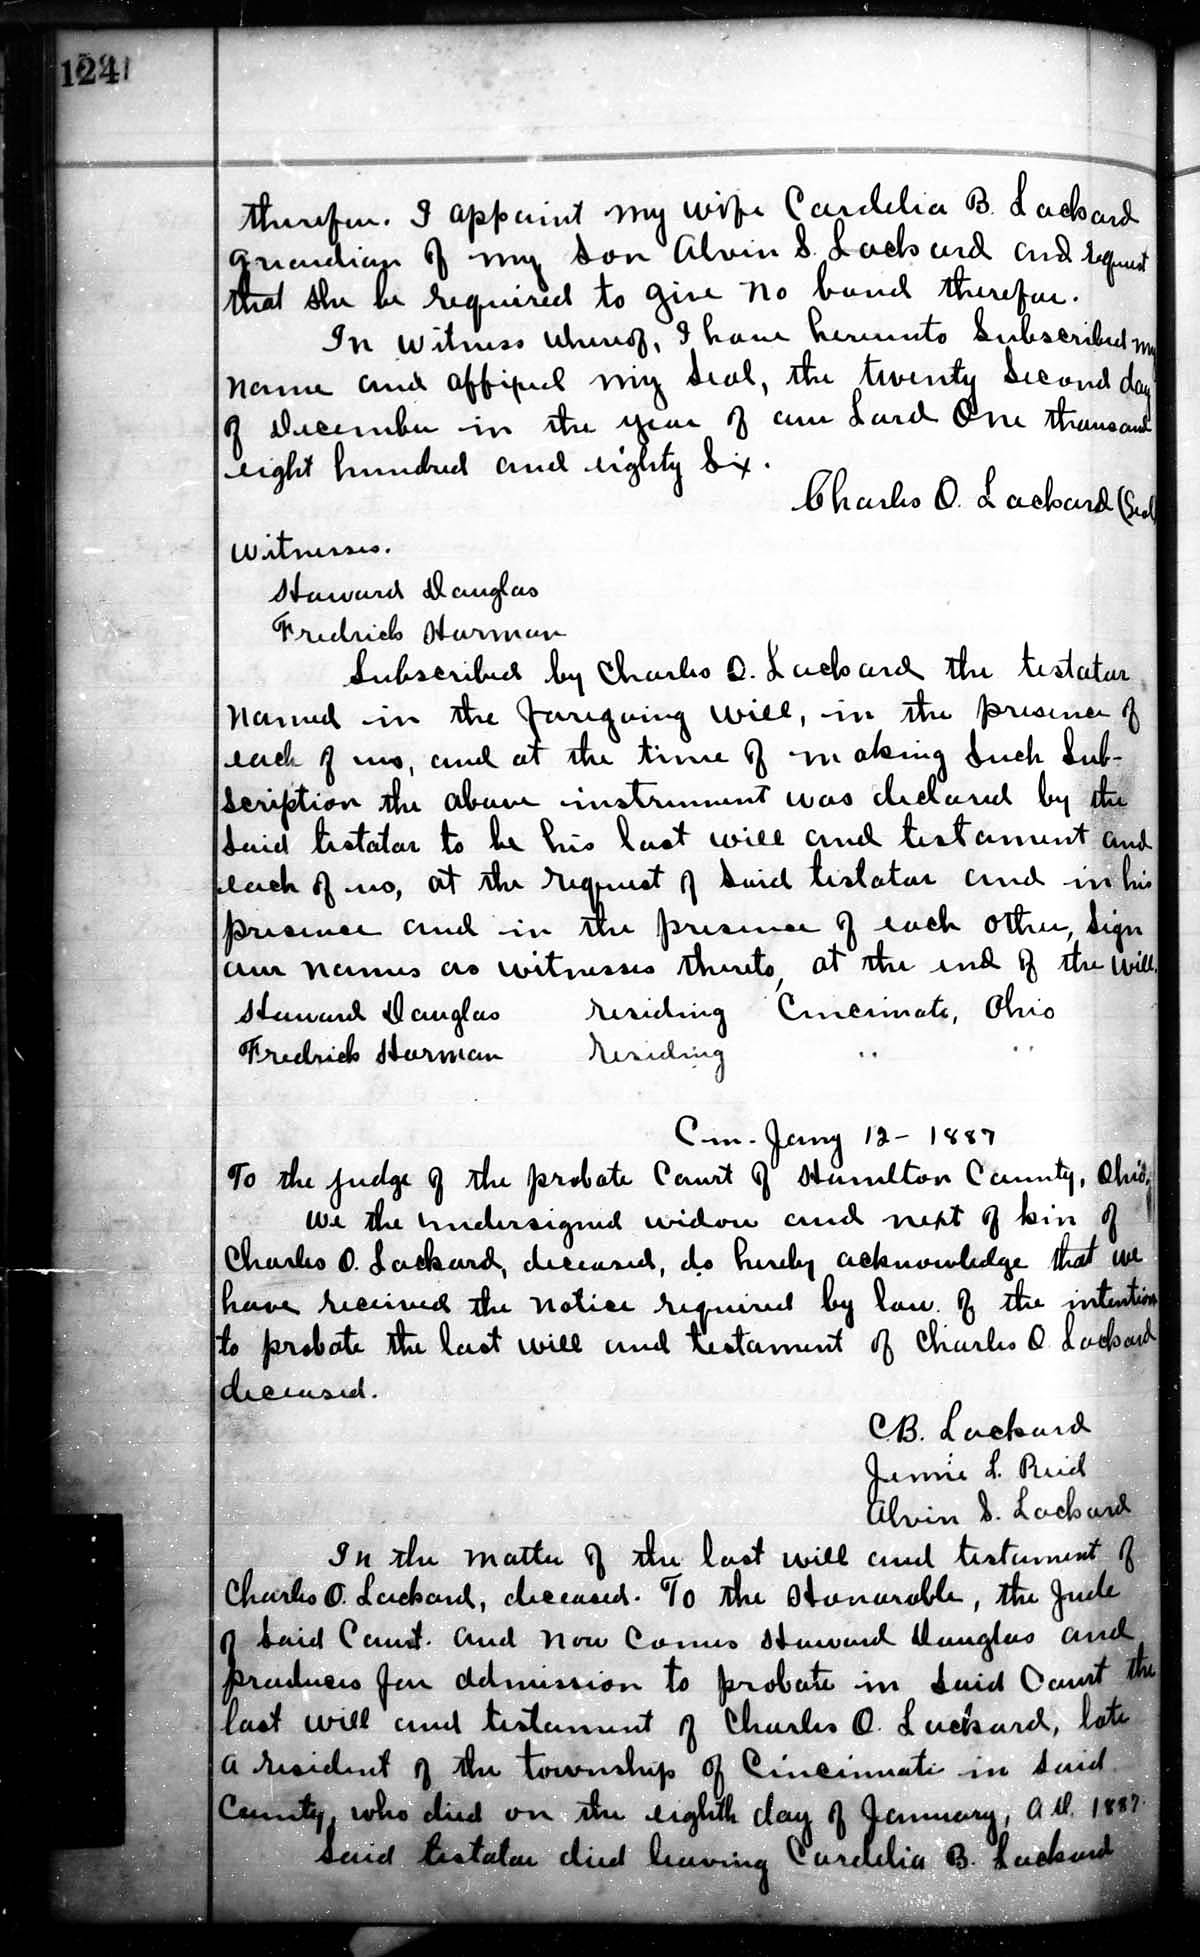 124
therefor. I appoint my wife Cordelia B. Lockard
guardian of my son Alvin S. Lockard and request
that she be required to give no bond therefor.
In Witness whereof, I have hereunto subscribed my
name and affixed my seal, the twenty second day
of December in the year of our Lord One thousand
eight hundred and eighty six.
Charles O. Lockard (Seal
Witnesses.
Howard Douglas
Fredrick Harman
Subscribed by Charles O. Lockard the testator
named in the foregoing will, in the presence of
each of us, and at the time of making such sub-
scription the above instrument was declared by the
said testator to be his last will and testament and
each of us, at the request of said testator and in his
presence and in the presence of each other, sign
our names as witnesses thereto, at the end of the will.
Howard Douglas residing Cincinnati, Ohio
Fredrick Harman residing " "
Cin. Jany 12 - 1887
To the judge of the probate Court of Hamilton County, Ohio,
We the undersigned widow and next of kin of
Charles O. Lockard, deceased, do hereby acknowledge that we
have received the notice required by law of the intention
to probate the last will and testament of Charles O. Lockard
deceased.
C.B. Lockard
Jennie L. Reid
Alvin S. Lockard
In the matter of the last will and testament of
Charles O. Lockard, deceased. To the Honorable, the Jude
of said Court. And now comes Howard Douglas and
produces for admission to probate in said Court the
last will and testament of Charles O. Lockard, late
a resident of the township of Cincinnati in said
County, who died on the eighth day of January, A.D. 1887.
Said testator died leaving Cordelia B. Lockard